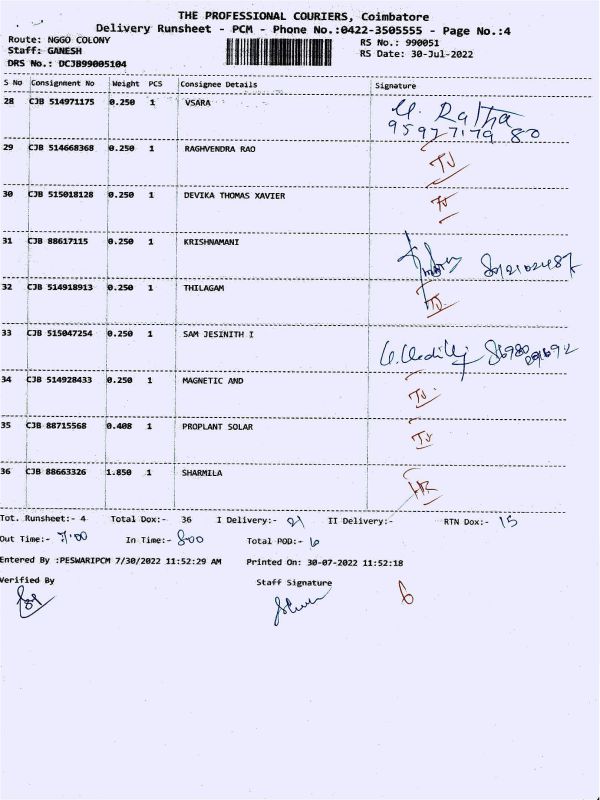 THE PROFESSIONAL COURIERS, Coimbatore
Delivery Runsheet - PCM - Phone No.:0422-3505555 - Page No.:4
Route: NGGO COLONY RS No.: 990051
Staff: GANESH RS Date: 30-Jul-2022
DRS No.: DCJB99005104
S No Consignment No Weight PCS Consignee Details Signature
28 CJB 514971175 0.250 1 VSARA
29 CJB 514668368 0.250 1 RAGHVENDRA RAO TJ
30 CJB 515018128 0.250 1 DEVIKA THOMAS XAVIER TJ
31 CJB 88617115 0.250 1 KRISHNAMANI
32 CJB 514918913 0.250 1 THILAGAM TJ
33 CJB 515047254 0.250 1 SAM JESINITH I
34 CJB 514928433 0.250 1 MAGNETIC AND TJ
35 CJB 88715568 0.408 1 PROPLANT SOLAR TJ
36 CJB 88663326 1.850 1 SHARMILA
Tot. Runsheet:- 4 Total Dox:- 36 I Delivery:- 21 II Delivery:- RTN Dox:- 15
Out Time:- 7:00 In Time:- 8:00 Total POD:- 6
Entered By :PESWARIPCM 7/30/2022 11:52:29 AM Printed On: 30-07-2022 11:52:18
Verified By Staff Signature
6